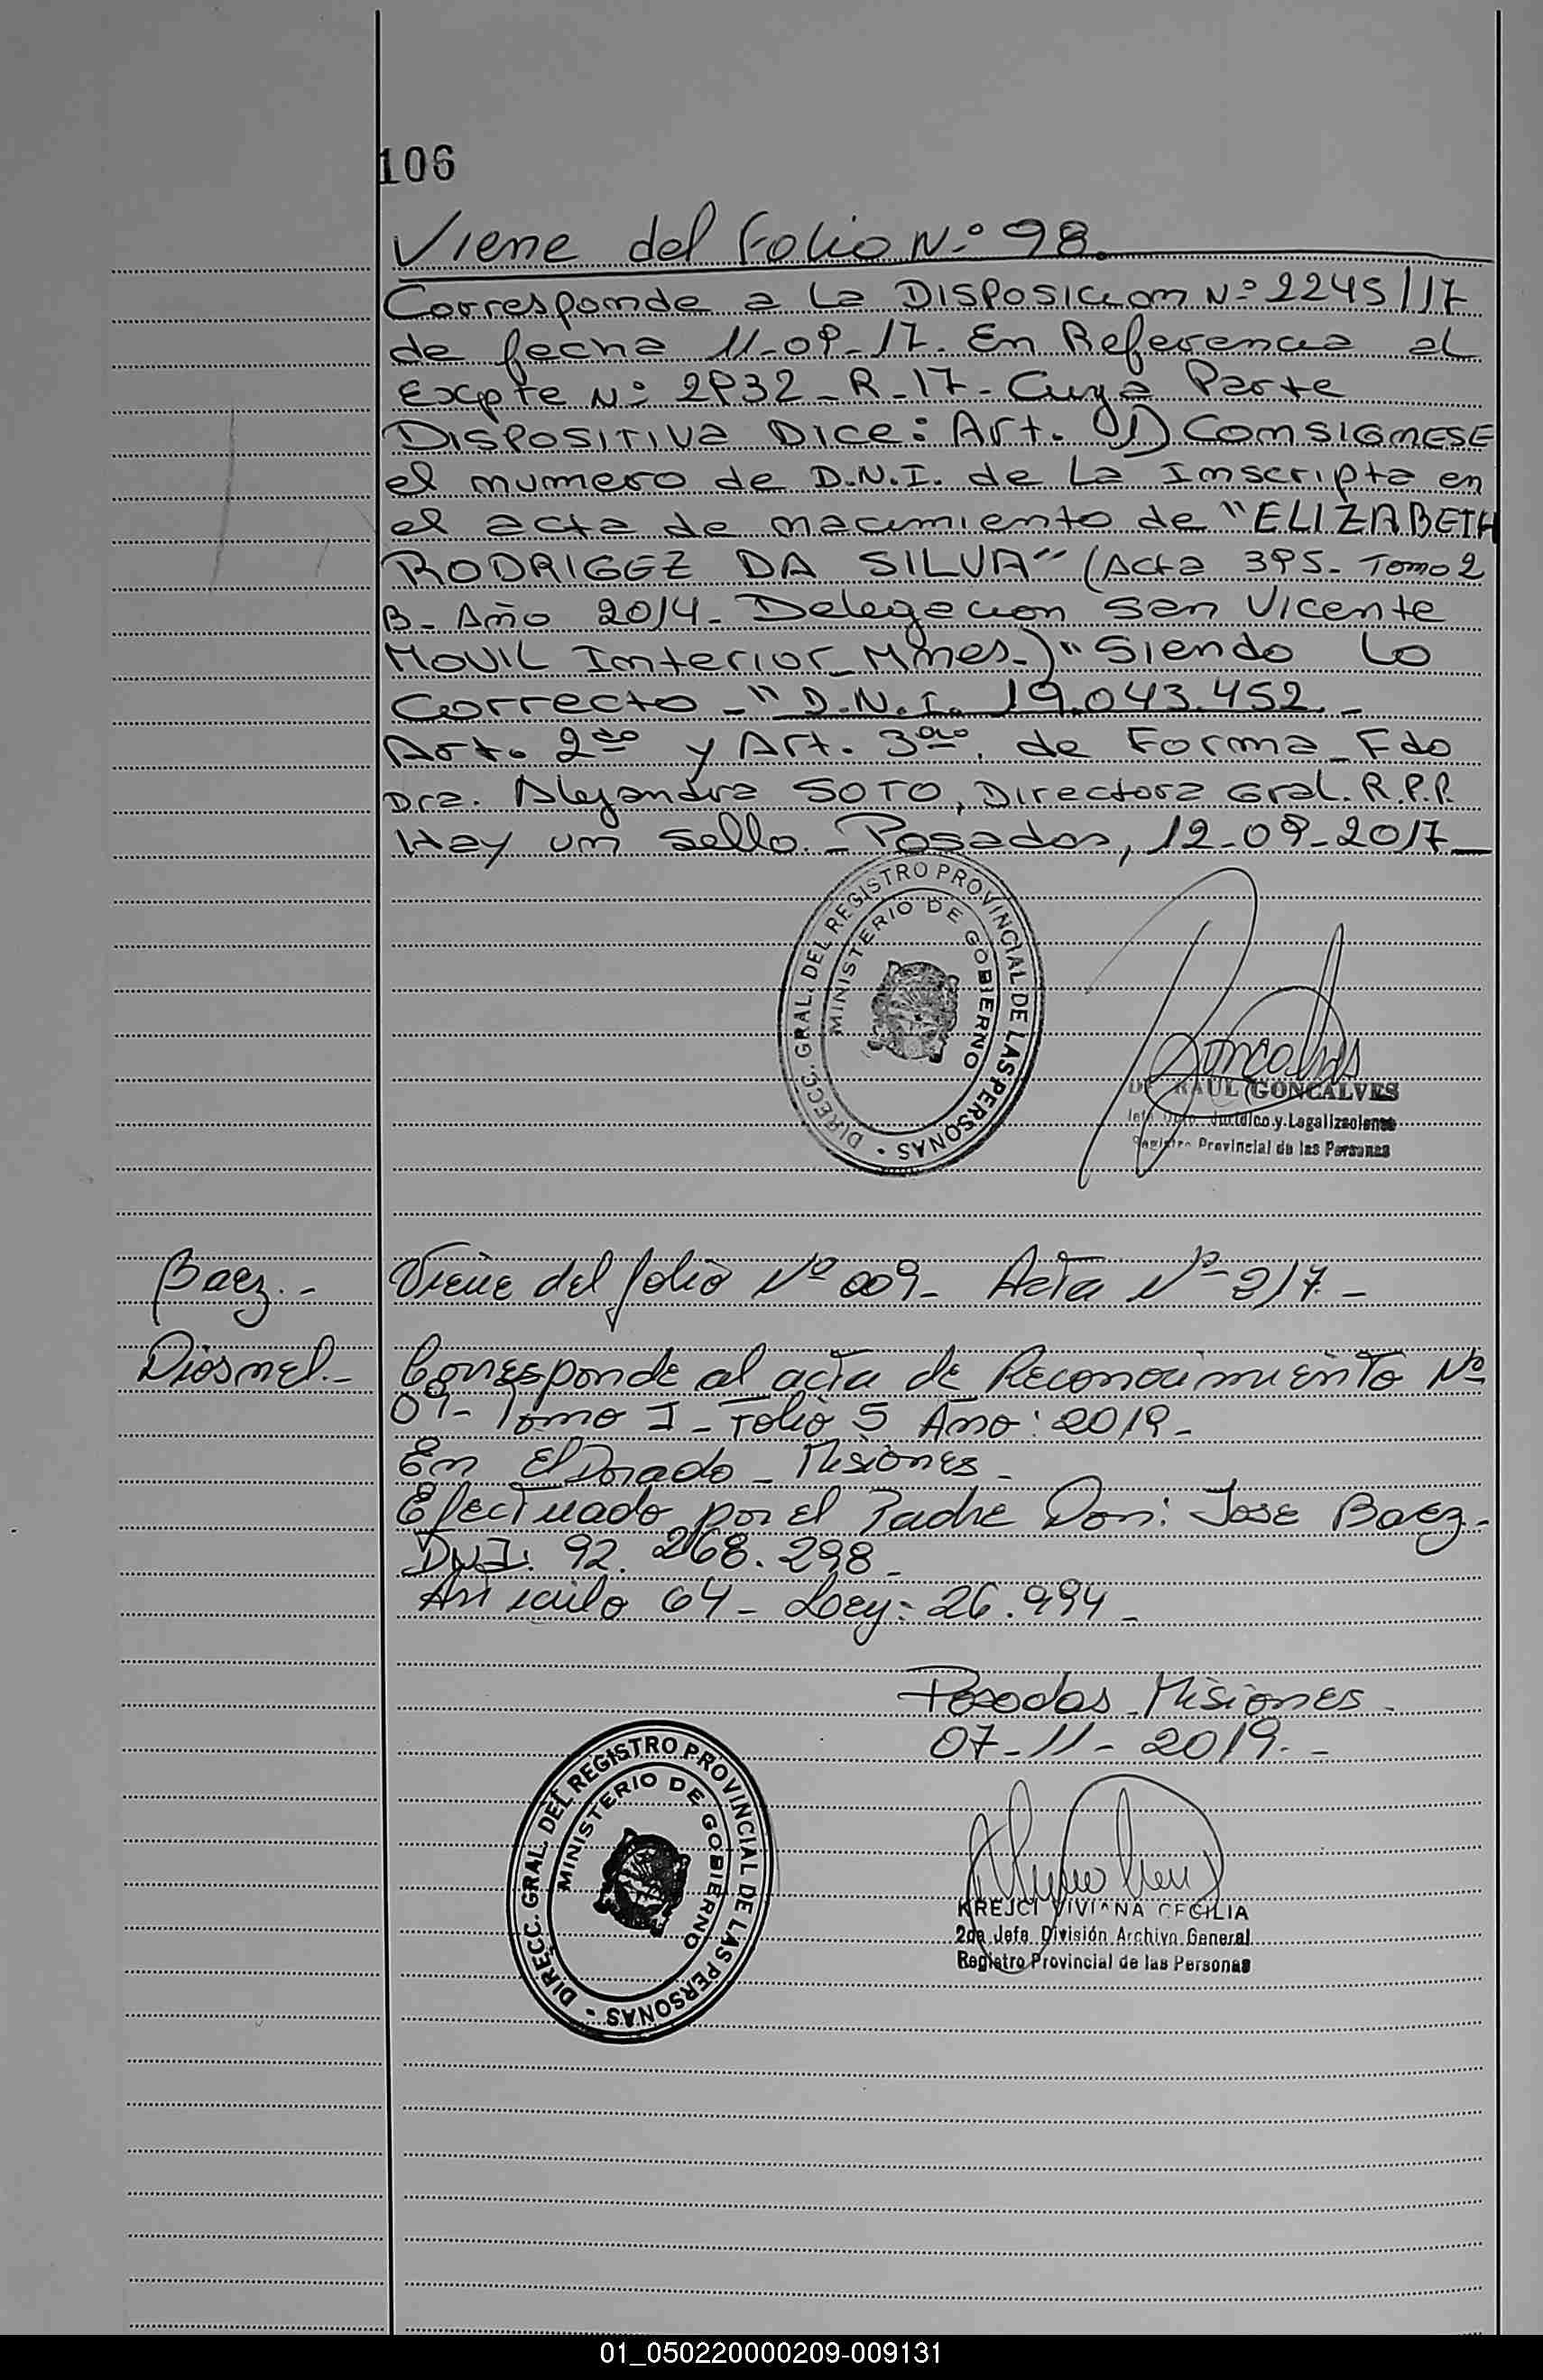 106
Viene del Folio N.º 98.
Corresponde a La DISPOSICION N.º 2245/17
de fecha 11-09-17. En Referencia al
Expte N.º 2932-R-17- Cuya Parte
DISPOSITIVA DICE: Art. 1) CONSIGNESE
el numero de D.N.I. de La Inscripta en
el acta de nacimiento de "ELIZABETH
RODRIGGEZ DA SILVA" (Acta 395- Tomo 2
B- Año 2014- Delegacion San Vicente
MOVIL Interior- Mnes-)" Siendo Lo
Correcto -" D.N.I. 19.043.452.-
Art. 2do y Art. 3ero. de Forma- Fdo
Dra. Alejandra SOTO, Directora Gral. R.P.P.
Hay un sello.- Posadas, 12-09-2017
DIRECC. GRAL. DEL REGISTRO PROVINCIAL DE LAS PERSONAS
MINISTERIO DE GOBIERNO
RAUL GONCALVES
Jurídico y Legalizaciones
Registro Provincial de las Personas
Baez.- Viene del folio Nº 009- Acta Nº 217.-
Diosnel.- Corresponde al acta de Reconocimiento Nº
09- Tomo I- Folio 5 Año: 2019-
En ElDorado- Misiones-
Efectuado por el Padre Don: Jose Baez-
DNI: 92.268.298-
Articulo 64- Ley: 26.994-
Posadas-Misiones-
07-11-2019.-
DIRECC. GRAL. DEL REGISTRO PROVINCIAL DE LAS PERSONAS
MINISTERIO DE GOBIERNO
KREJCI VIVIANA CECILIA
2da Jefa División Archivo General
Registro Provincial de las Personas
01_050220000209-009131